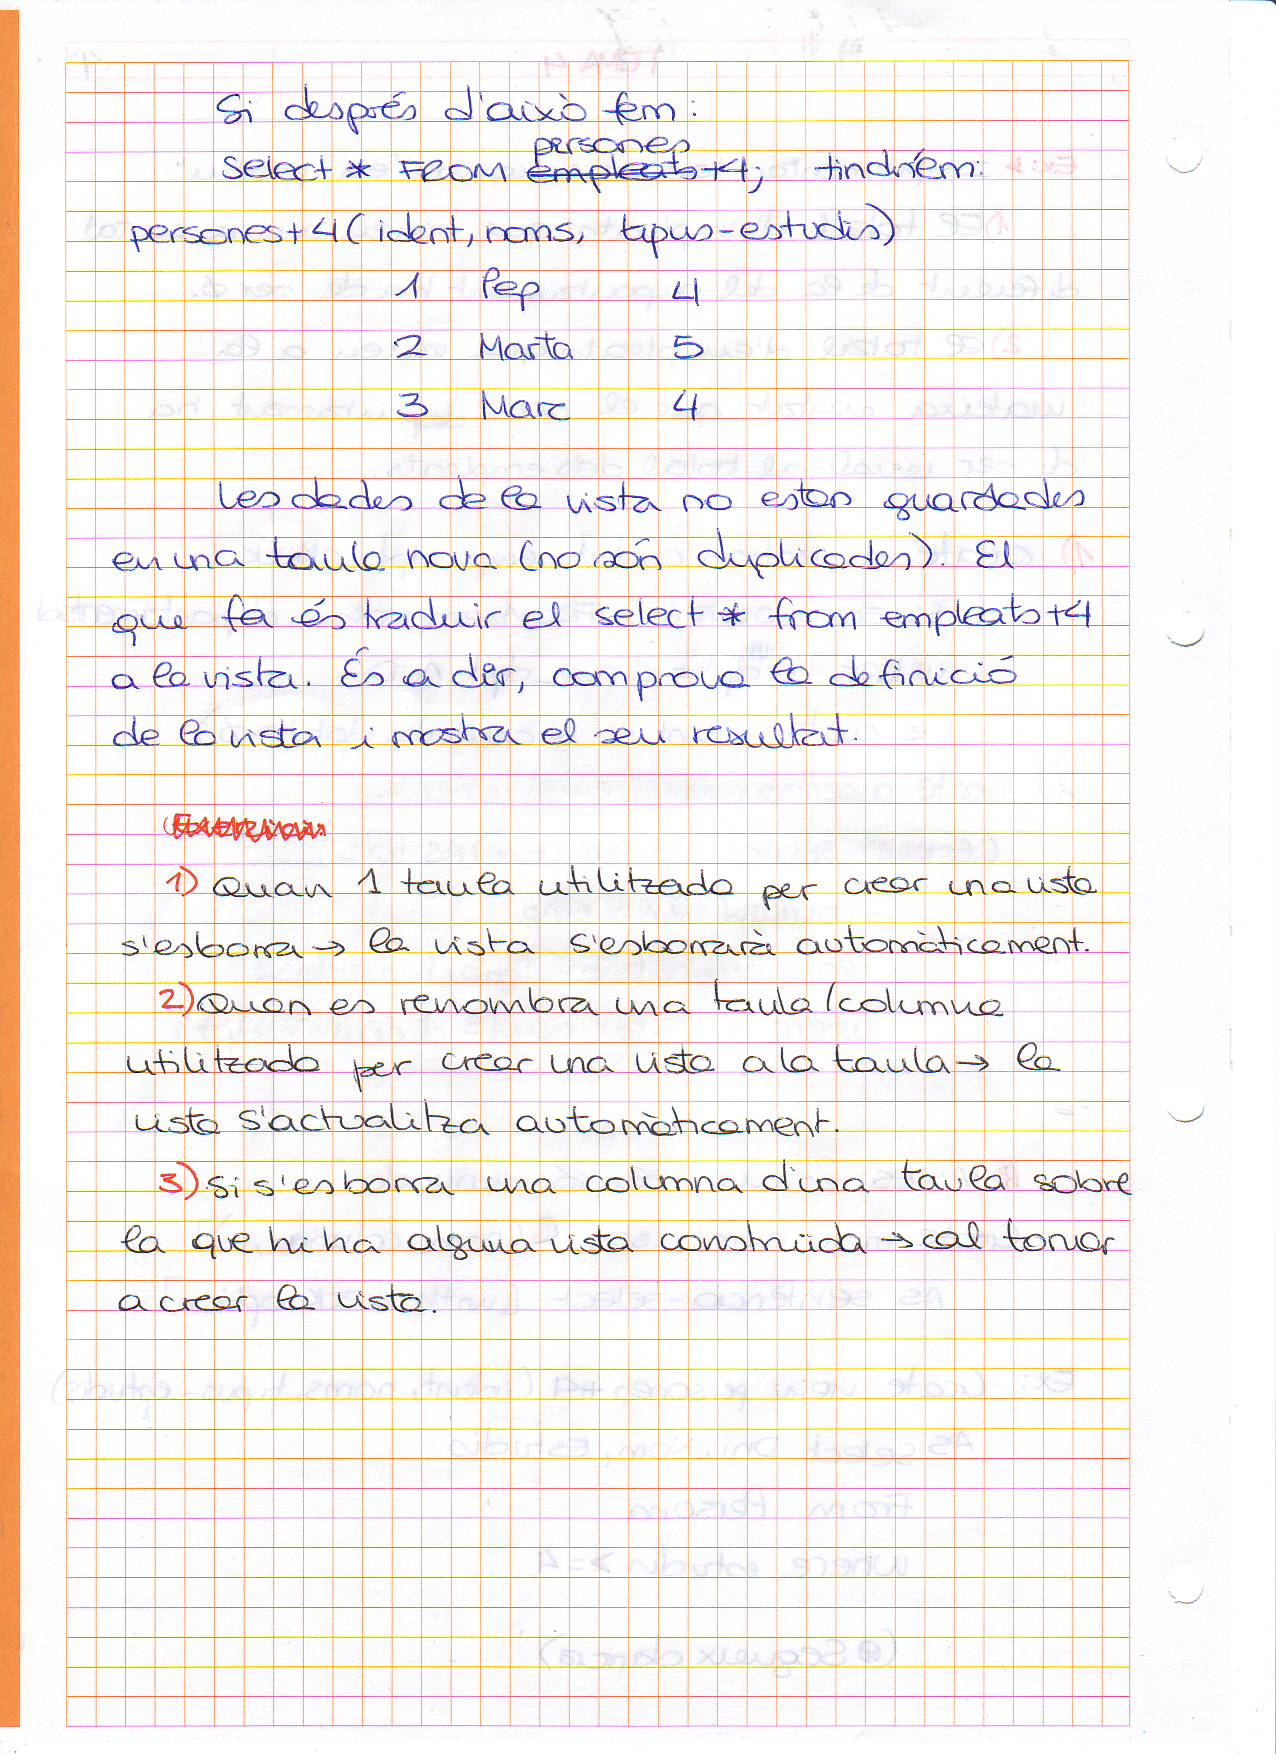 Si després d'això fem:
Select * FROM persones+4; tindríem:
persones+4 (ident, noms, tipus-estudis)
1 Pep 4
2 Marta 5
3 Marc 4
Les dades de la vista no estan guardades
en una taula nova (no són duplicades). El
que fa és traduir el select * from empleats+4
a la vista. És a dir, comprova la definició
de la vista i mostra el seu resultat.
1) Quan 1 taula utilitzada per crear una vista
s'esborra → la vista s'esborrarà automàticament.
2) Quan es renombra una taula/columna
utilitzada per crear una vista a la taula → la
vista s'actualitza automàticament.
3) Si s'esborra una columna d'una taula sobre
la que hi ha alguna vista construïda → cal tornar
a crear la vista.